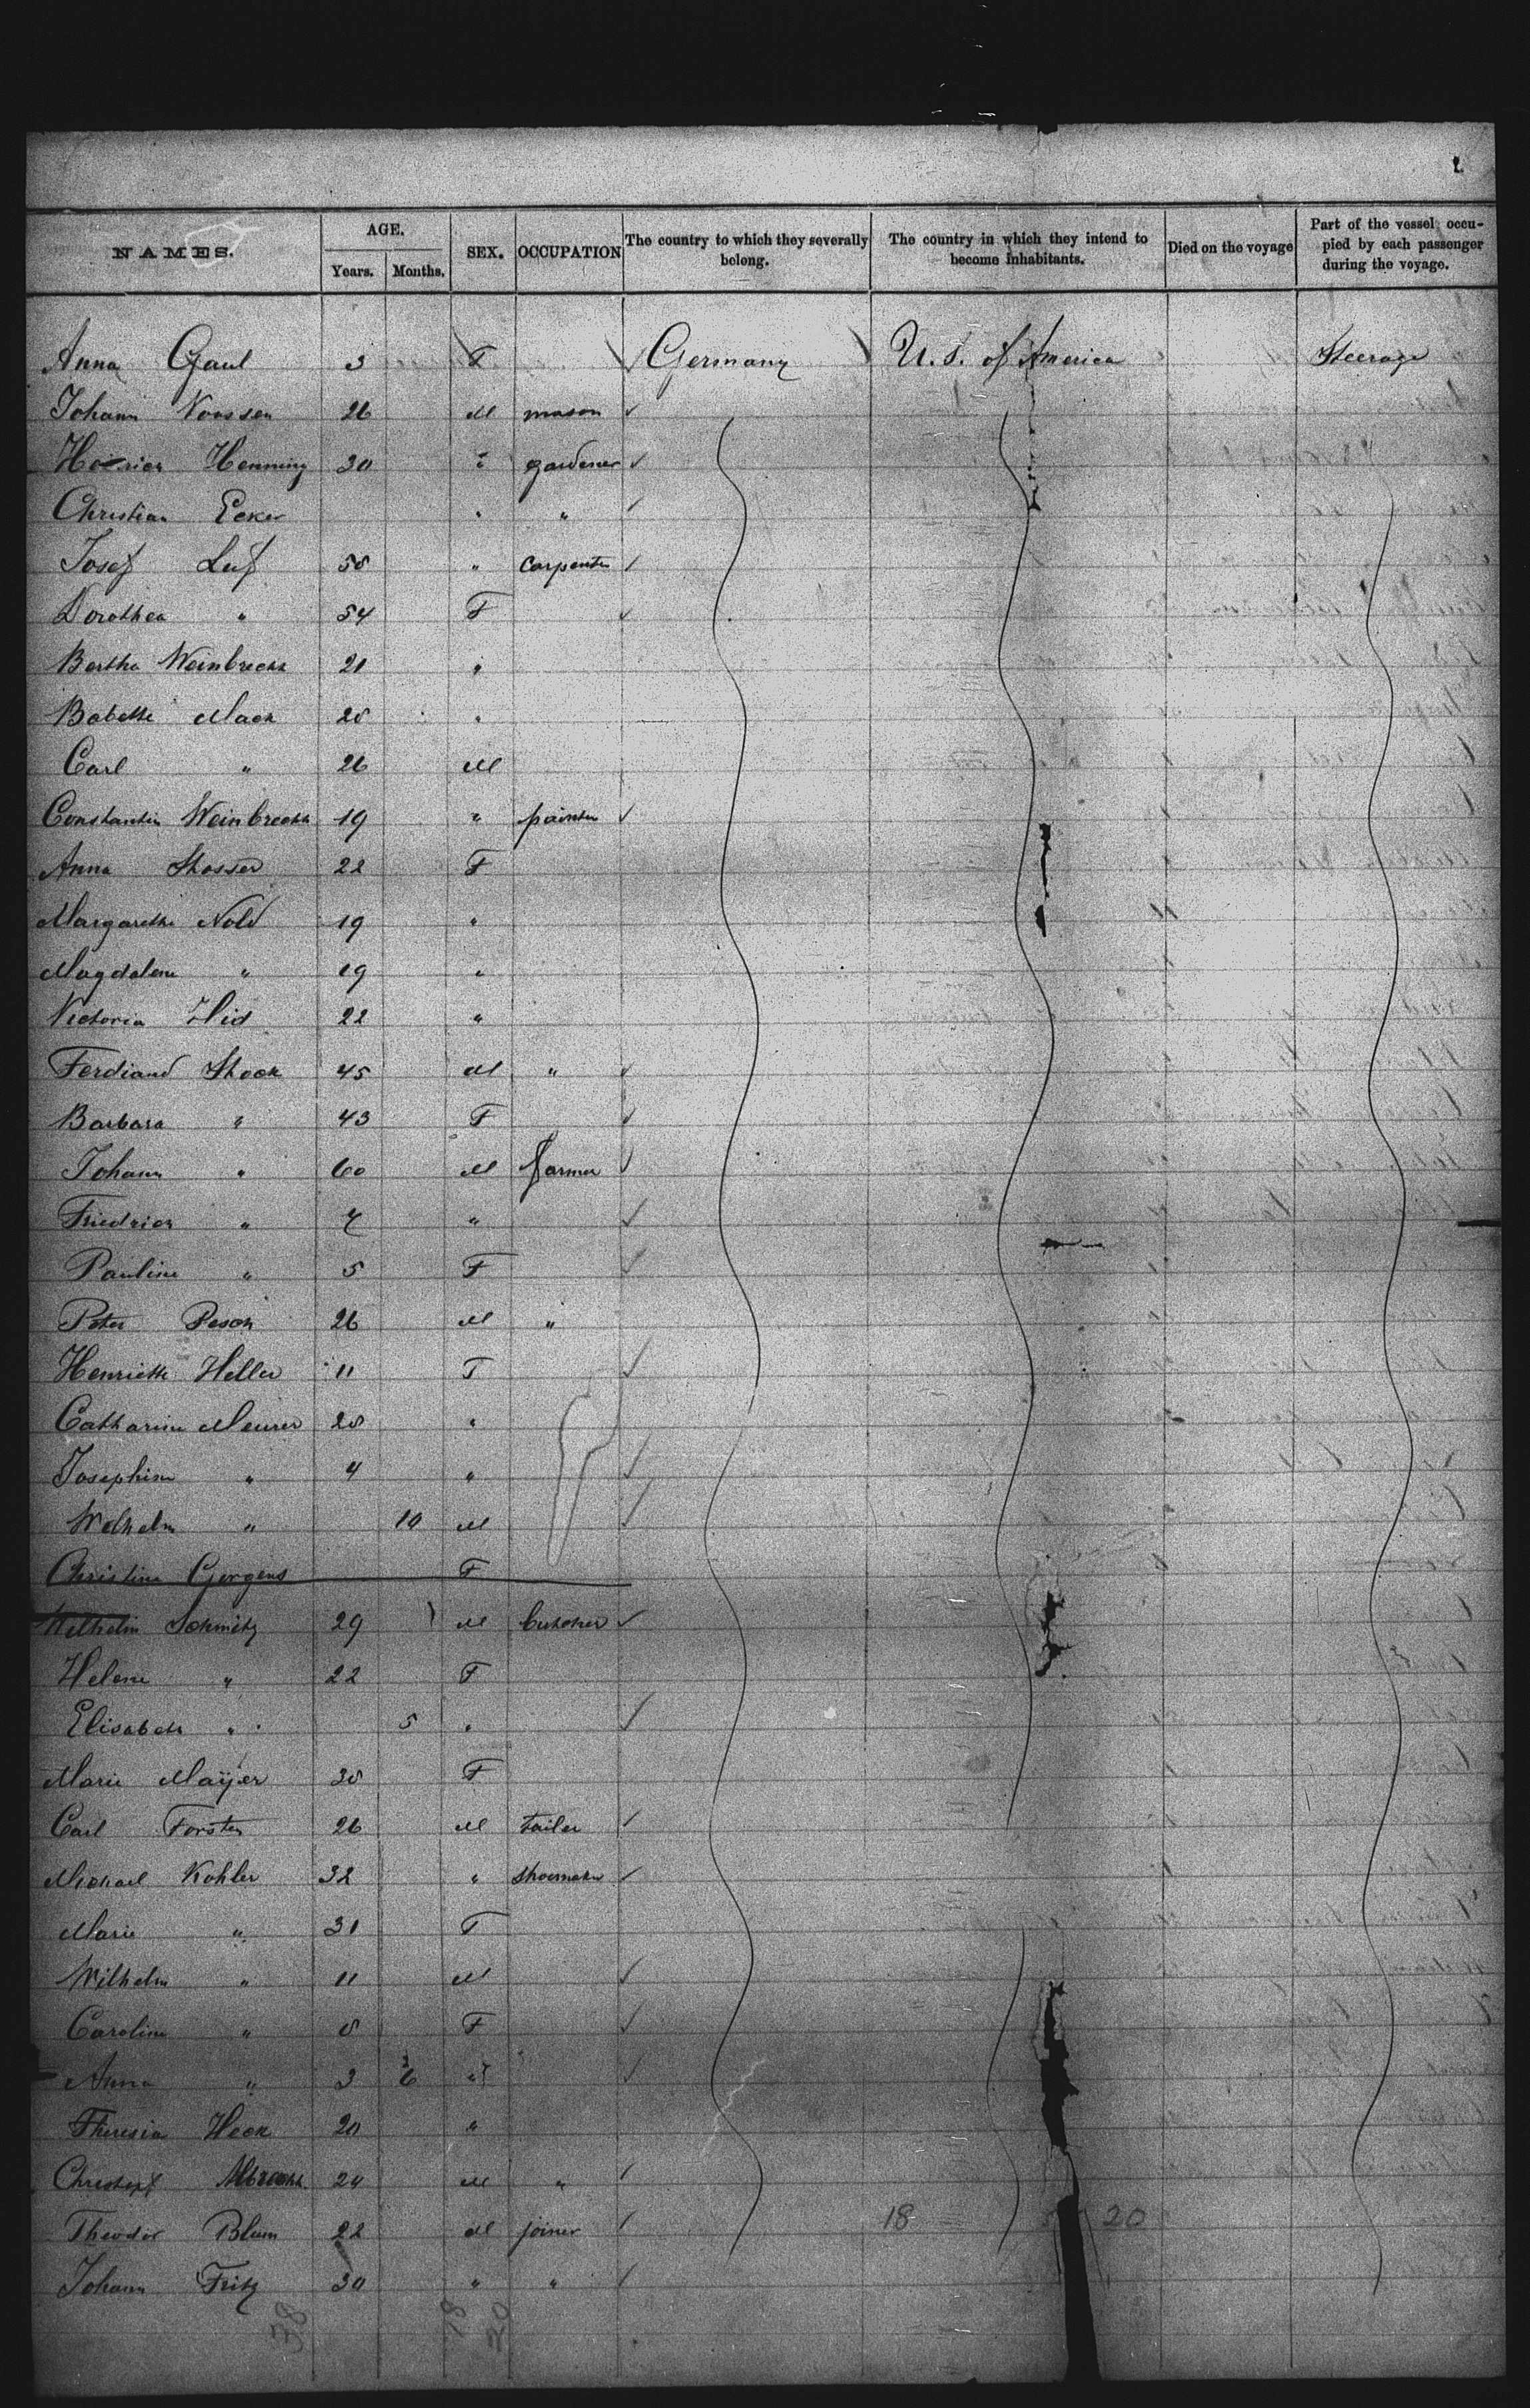 NAMES. AGE. Years. Months. SEX. OCCUPATION The country to which they severally belong. The country in which they intend to become inhabitants. Died on the voyage Part of the vessel occupied by each passenger during the voyage.
Anna Gaul 3 F Germany U.S. of America Steerage
Johann 26 M mason
Henning 30 " gardener
Christian Ecker " "
Josef Luf 58 " carpenter
Dorothea " 54 F
Bertha Weinbrecht 21 "
Babette Mack 28 "
Carl " 26 M
Constantin Weinbrecht 19 " painter
Anna 22 F
Margarethe Nold 19 "
Magdalene " 19 "
Victoria Hid 22 "
Ferdiand Shock 45 M "
Barbara " 43 F
Johann " 60 M farmer
Friedrich " 7 "
Pauline " 5 F
Peter Pesch 26 M "
Henriette Heller 11 F
Catharine Meurer 28 "
Josephine " 4 "
Wilhelm " 10 M
Christine Gergens F
Wilhelm Schmitz 29 M butcher
Helene " 22 F
Elisabeth " 5 "
Marie Mayer 38 F
Carl Forster 26 M tailer
Michael Kohler 32 " shoemaker
Marie " 31 F
Wilhelm " 11 M
Caroline " 8 F
Anna " 3 6 "
Theresia Heck 20 "
Christoph Albrecht 24 M "
Theodor Blum 22 M joiner 18 20
Johann Fritz 30 " "
38 18 20